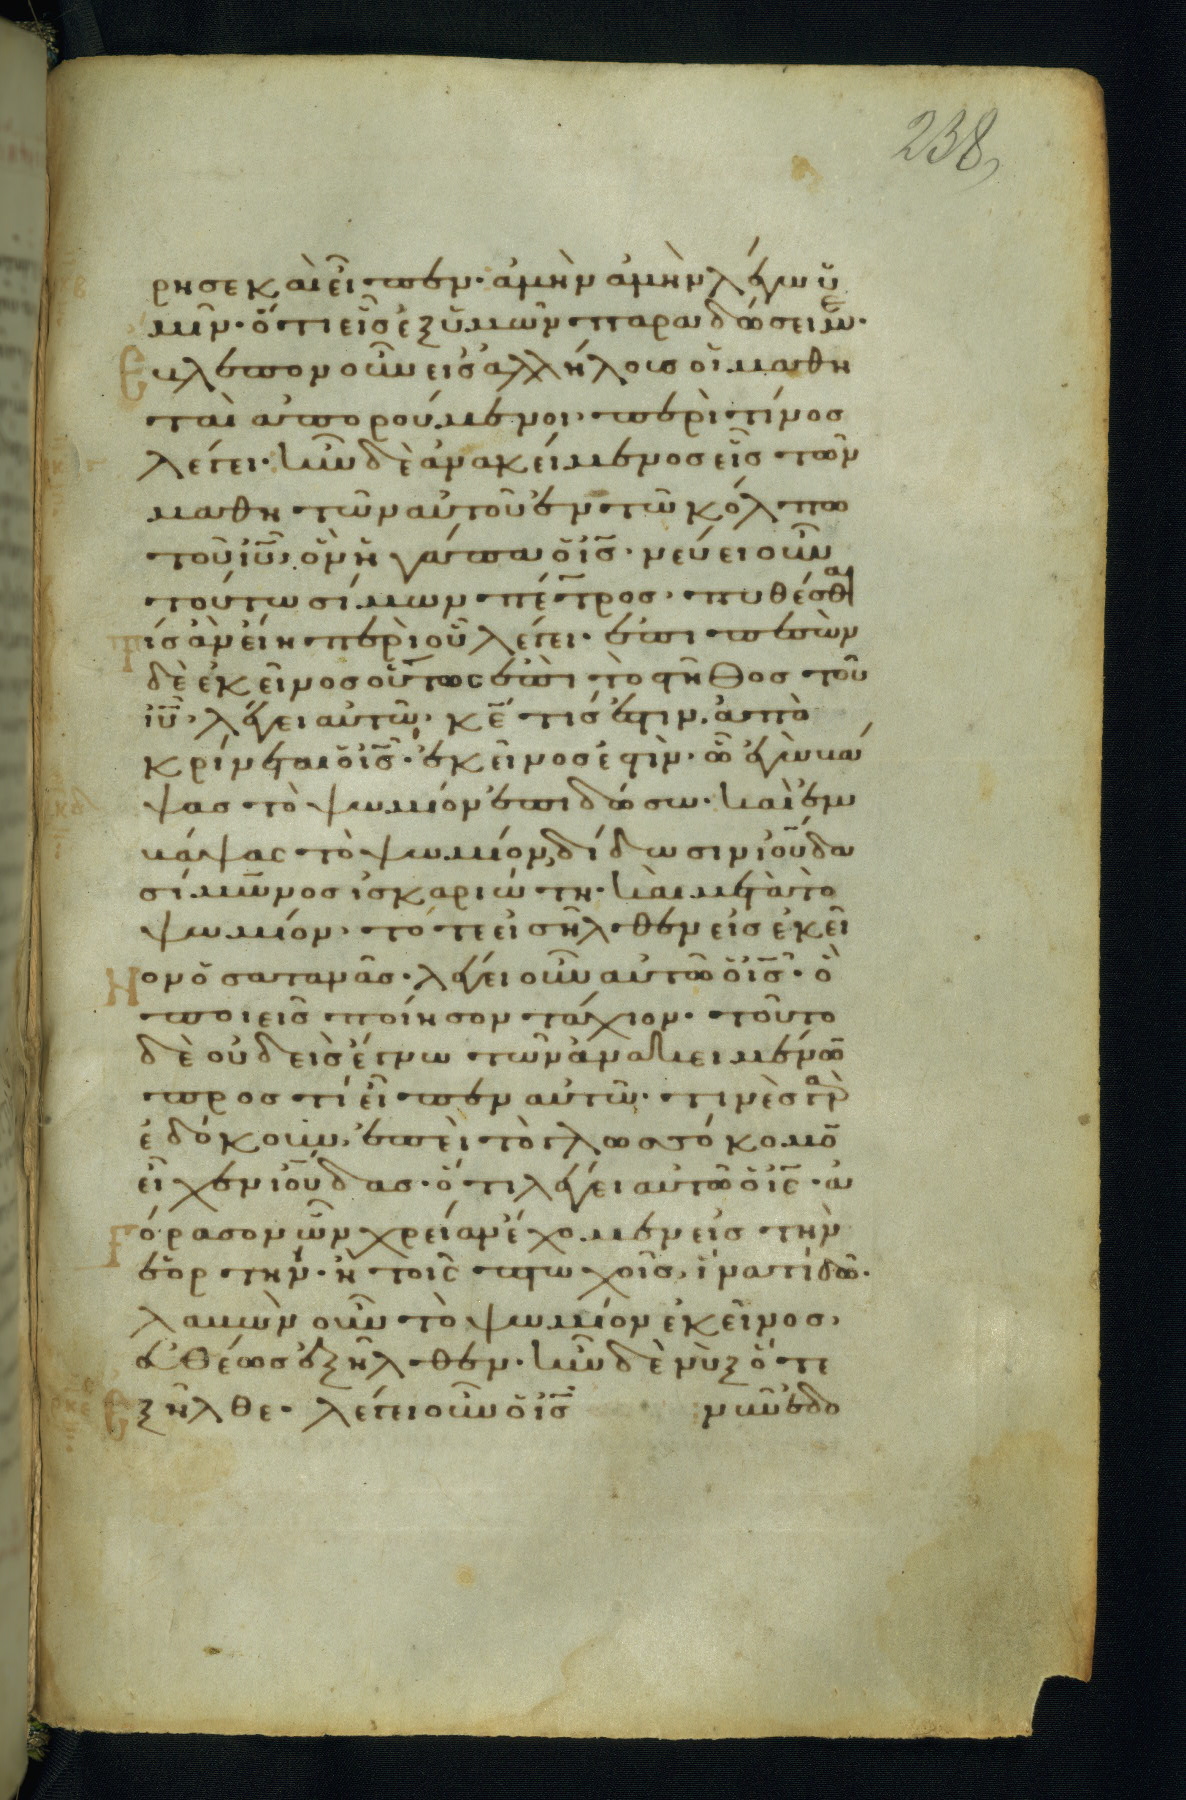 238
ρησε καὶ εἶπεν· ἀμὴν ἀμὴν λέγω ὑ
μῖν· ὅτι εἷς ἐξ ὑμῶν παραδώσει με·
Εβλεπον οὖν εἰς ἀλλήλους οἱ μαθη
ταὶ ἀπορούμενοι· περὶ τίνος
λέγει· ἦν δὲ ἀνακείμενος εἷς τῶν
μαθητῶν αὐτοῦ ἐν τῶ κόλπω
τοῦ ιυ, ὃν ἠγάπα ὁ ις· νεύει οὖν
τούτω σίμων πέτρος· πυθέσθαι
τίς ἂν εἴη περὶ οὗ λέγει· ἐπιπεσὼν
δὲ ἐκεῖνος οὕτως ἐπὶ τὸ στῆθος τοῦ
ιυ· λέγει αὐτῶ, κε τίς ἐστιν· ἀπο
κρίνεται ὁ ις· ἐκεῖνος ἐστὶν· ὧ ἐγὼ βά
ψας τὸ ψωμίον ἐπιδώσω· καὶ ἐμ
βάψας τὸ ψωμίον, δίδωσιν ἰούδα
σίμωνος ἰσκαριώτη· καὶ μετὰ τὸ
ψωμίον· τότε εἰσῆλθεν εἰς ἐκεῖ
νον ὁ σατανᾶς· λέγει οὖν αὐτῶ ὁ ις· ὃ
ποιεῖς ποίησον τάχιον· τοῦτο
δὲ οὐδεὶς ἔγνω τῶν ἀνακειμένων
πρὸς τί εἶπεν αὐτῶ· τινὲς γὰρ
ἐδόκουν, ἐπεὶ τὸ γλωσσόκομον
εἶχεν ἰούδας· ὅτι λέγει αὐτῶ ὁ ις· ἀ
γόρασον ὧν χρείαν ἔχομεν εἰς τὴν
ἑορτήν· ἢ τοῖς πτωχοῖς, ἵνα τί δῶ·
λαβὼν οὖν τὸ ψωμίον ἐκεῖνος,
εὐθέως ἐξῆλθεν· ἦν δὲ νὺξ ὅτε
ἐξῆλθε· λέγει οὖν ὁ ις νῦν ἐδο